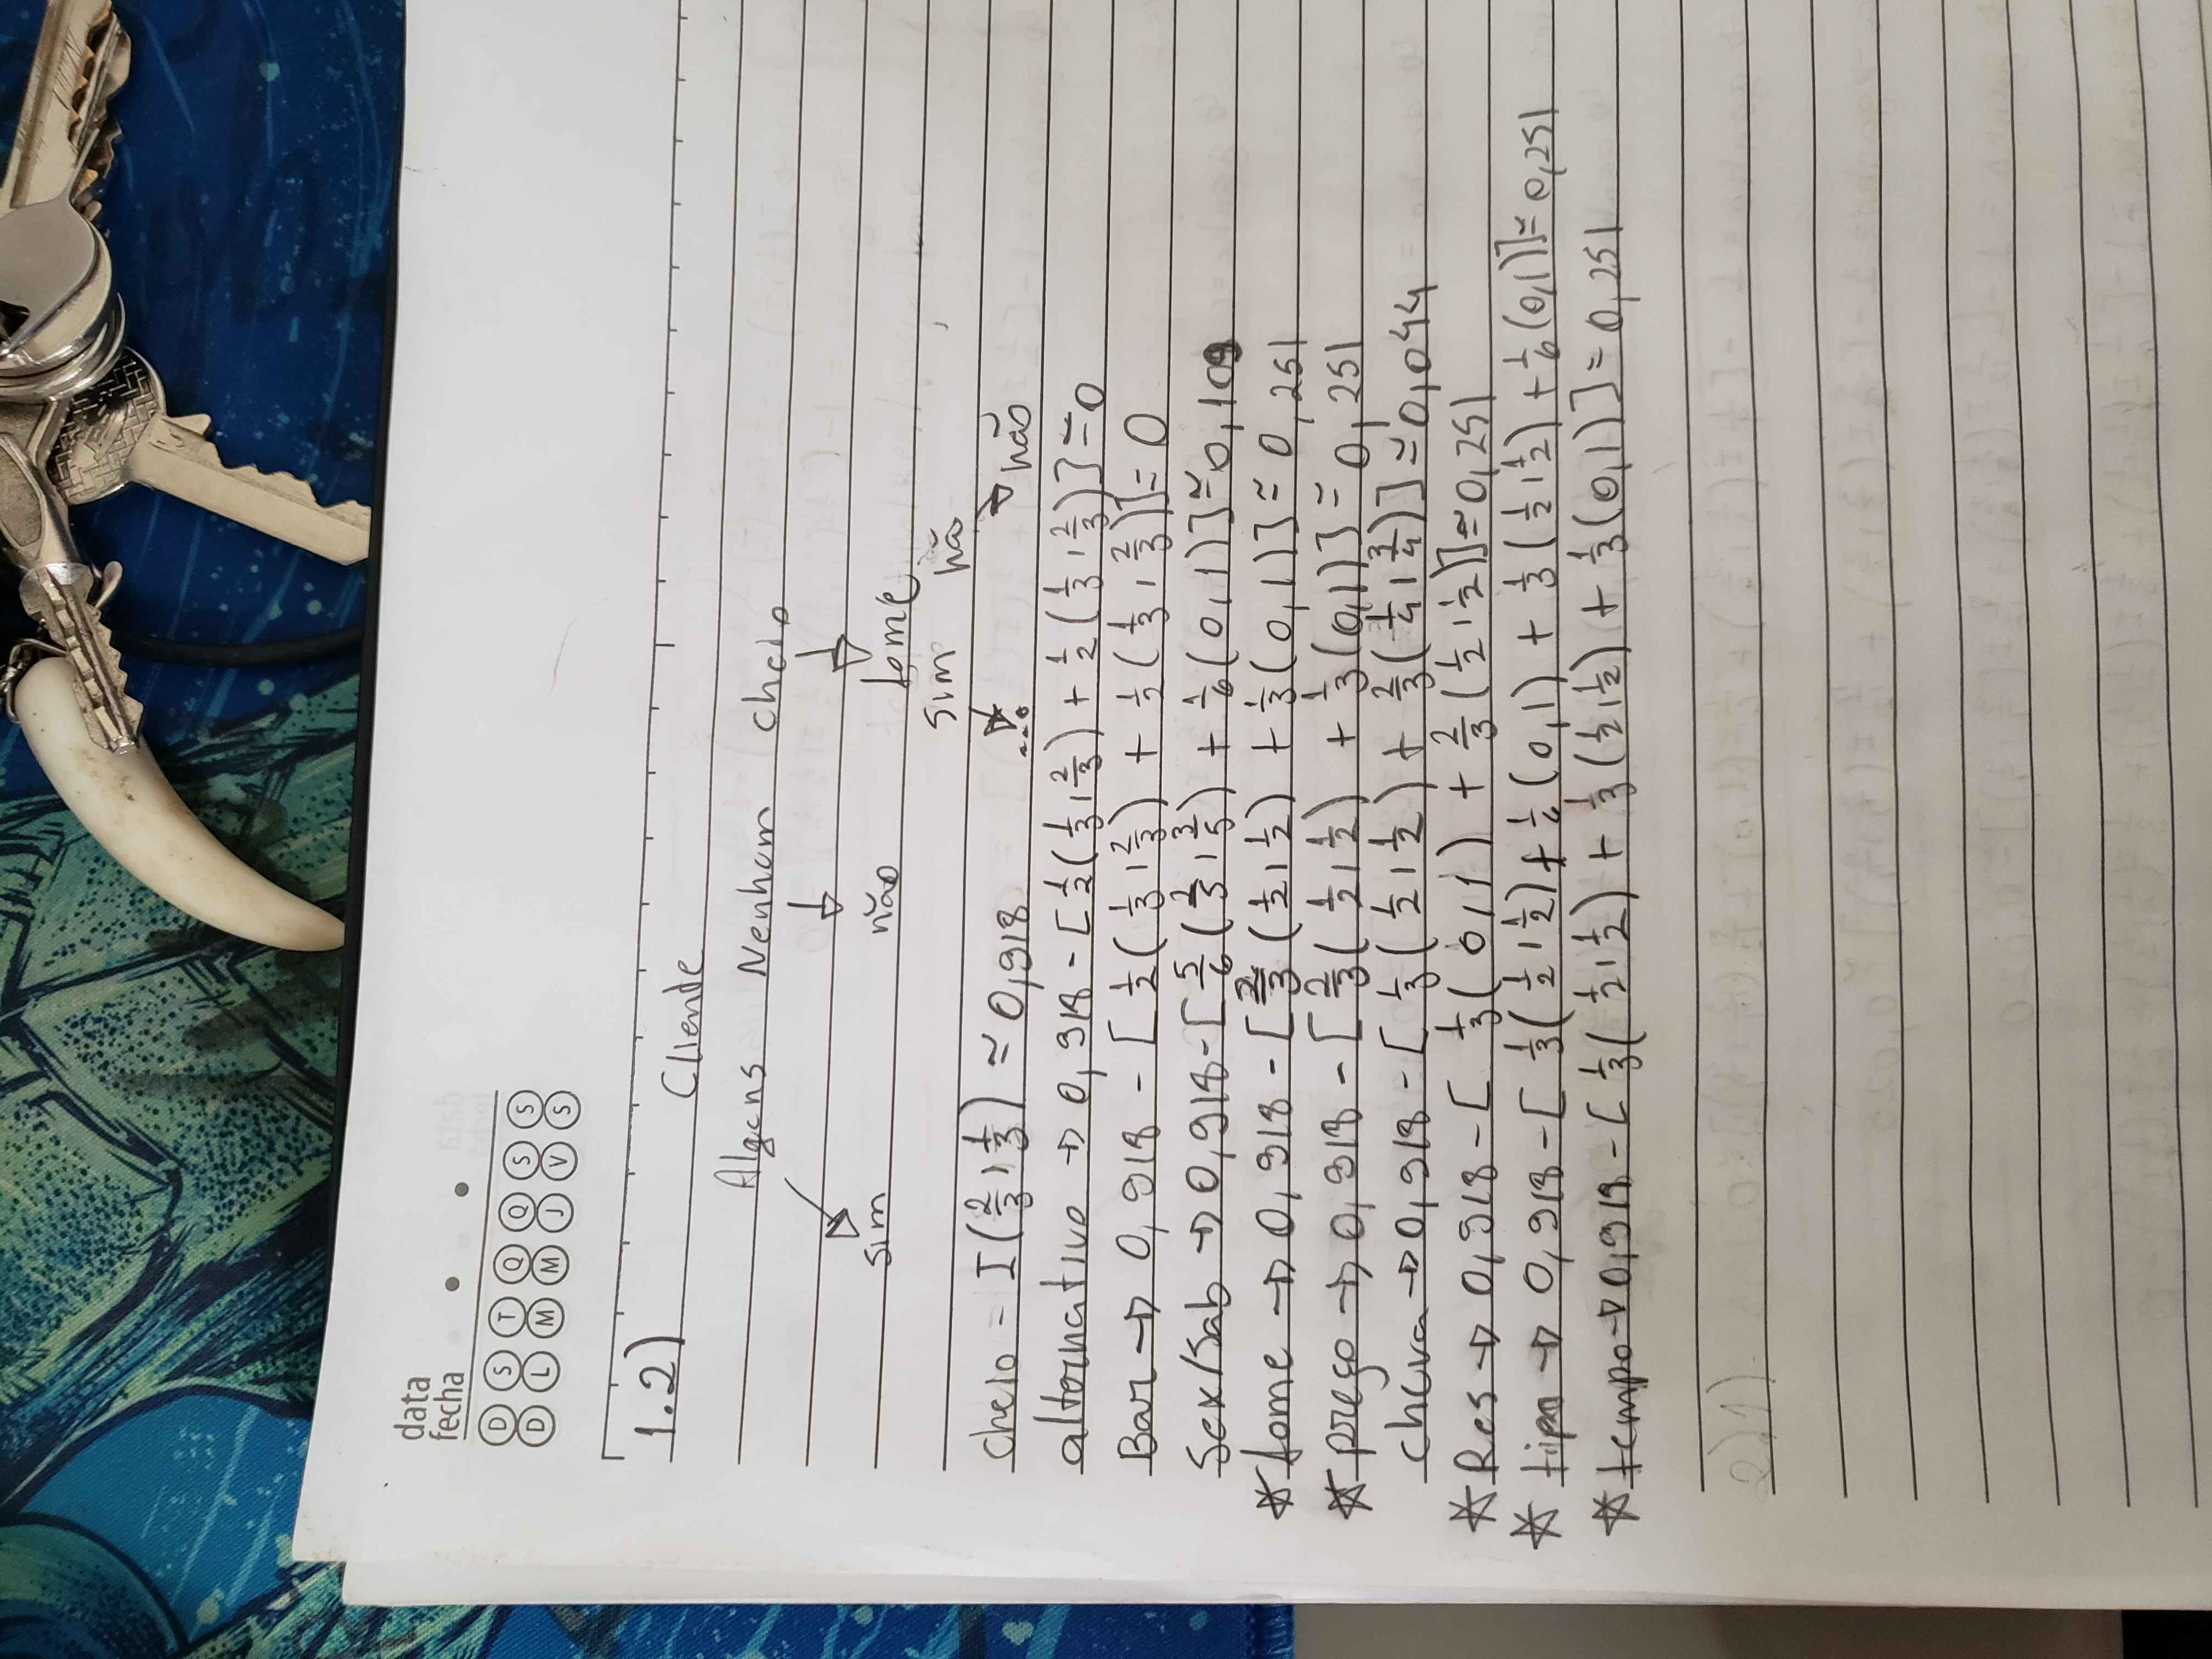 data
fecha
D S T Q Q S S
D L M M J V S
1.2)
Cliente
Alguns Nenhum cheio
Sim não fome
Sim não
... não
cheio = I(2/3, 1/3) ≃ 0,918
alternativo → 0,918 - [1/2(1/3, 2/3) + 1/2(1/3, 2/3)] ≃ 0
Bar → 0,918 - [1/2(1/3, 2/3) + 1/2(1/3, 2/3)] = 0
Sex/Sab → 0,918 - [5/6(2/5, 3/5) + 1/6(0,1)] ≃ 0,109
* fome → 0,918 - [2/3(1/2, 1/2) + 1/3(0,1)] ≃ 0,251
* preço → 0,918 - [2/3(1/2, 1/2) + 1/3(0,1)] ≃ 0,251
chuva → 0,918 - [1/3(1/2, 1/2) + 2/3(1/4, 3/4)] ≃ 0,044
* Res → 0,918 - [1/3(0,1) + 2/3(1/2, 1/2)] ≃ 0,251
* tipo → 0,918 - [1/3(1/2, 1/2) + 1/6(0,1) + 1/3(1/2, 1/2) + 1/6(0,1)] ≃ 0,251
* tempo → 0,918 - [1/3(1/2, 1/2) + 1/3(1/2, 1/2) + 1/3(0,1)] = 0,251
2)1)